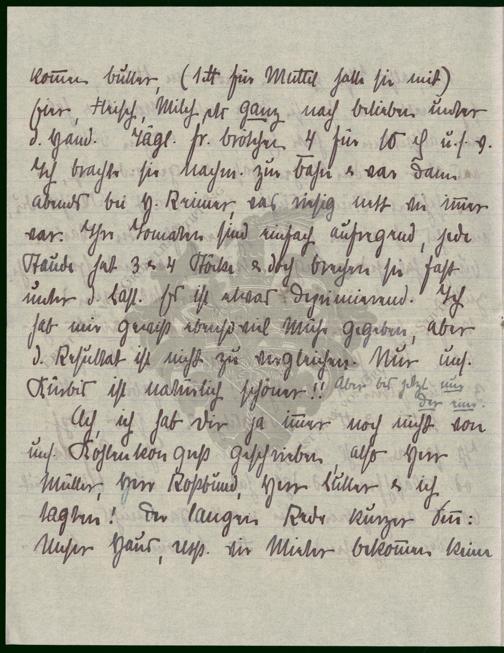 kommen butter, (1 ℔ für Muttel hatte sie mit)
Eier, Fleisch, Milch etc ganz nach belieben unter
d. Hand. Tägl. fr. brötchen 4 für 10 ₰ u.s.w.
Ich brachte sie nachm. zur Bahn & war dann
abends bei H. Reimer, was riesig nett wie immer
war. Ihre Tomaten sind einfach aufregend, jede
Staude hat 3 & 4 Stöcke & doch brechen sie fast
unter d. Last. Es ist etwas deprimierend. Ich
hab mir gewiss ebensoviel Mühe gegeben, aber
d. Resultat ist nicht zu vergleichen. Nur uns.
Kürbis ist natürlich schöner!! Aber bis jetzt nur
der eine.
Ach ich hab dir ja immer noch nicht von
uns. Kohlenkongreß geschrieben also Herr
Müller, Herr Roßbund, Herr Lütter & ich
tagten! Der langen Rede kurzer Sinn:
Unser Haus, resp. wir Mieter bekommen keine